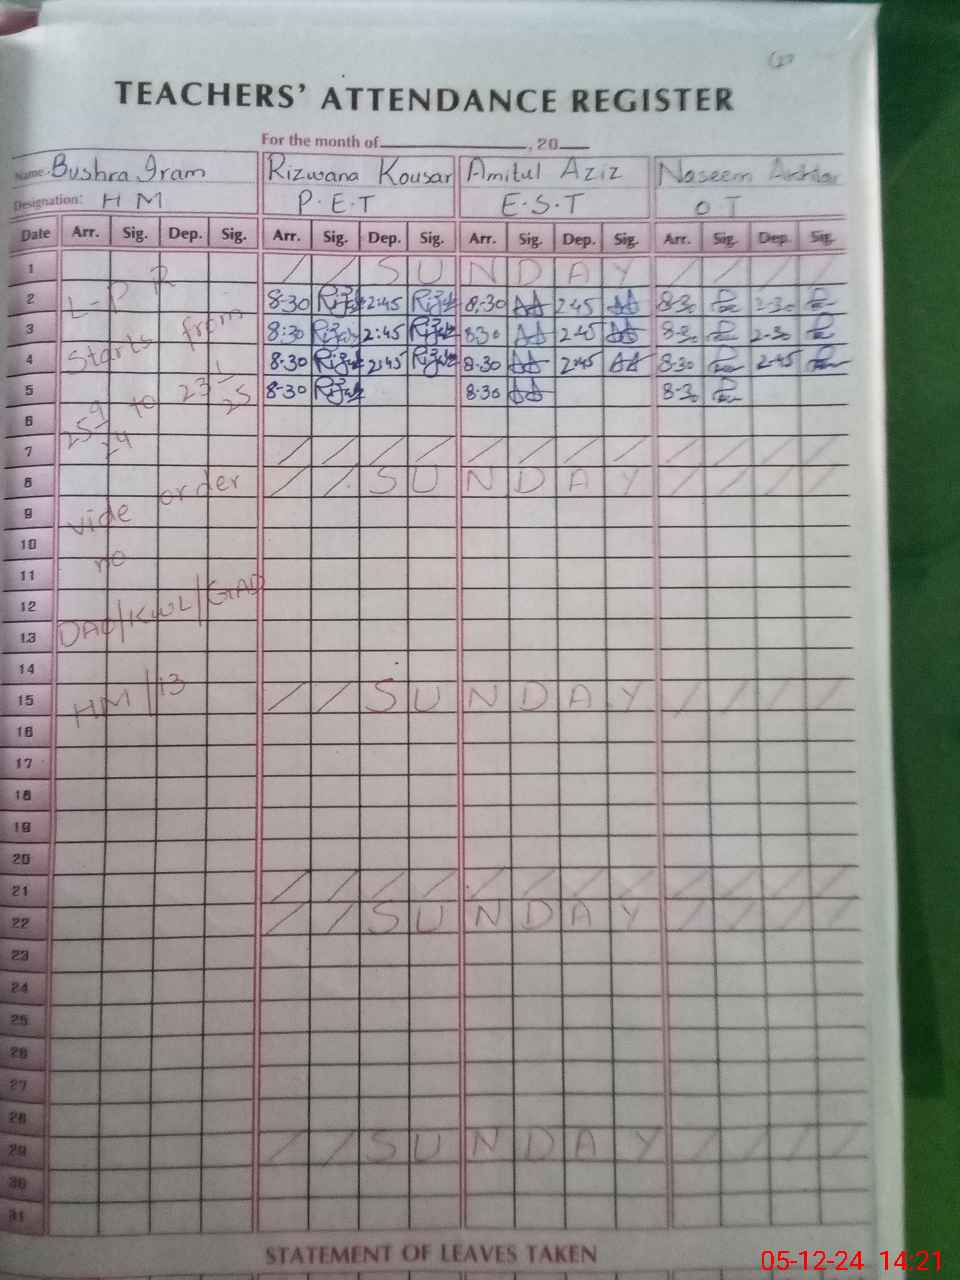 TEACHERS' ATTENDANCE REGISTER
For the month of ________, 20__
Name. Bushra Iram Rizwana Kousar Amitul Aziz Naseem Akhtar
Designation: H M P.E.T E.S.T O T
Date Arr. Sig. Dep. Sig. Arr. Sig. Dep. Sig. Arr. Sig. Dep. Sig. Arr. Sig. Dep. Sig.
1 / / S U N D A Y / / / /
2 8-30 2:45 8-30 2:45 8-30 2-30
L-P R
3 8:30 2:45 8:30 2:45 8-30 2-30
Starts from
4 8-30 2:45 8-30 2:45 8-30 2-45
5 8-30 8-30 8-30
25 9/24 to 23 1/25
6
7 / / / / / / / / / / / /
8 / / S U N D A Y / / / /
vide order
9
10
no
11
12
DAO/KWL/GAD
13
14
HM/13
15 / / S U N D A Y / / / /
16
17
18
19
20
21 / / / / / / / / / / / /
22 / / S U N D A Y / / / /
23
24
25
26
27
28
29 / / S U N D A Y / / / /
30
31
STATEMENT OF LEAVES TAKEN
05-12-24 14:21